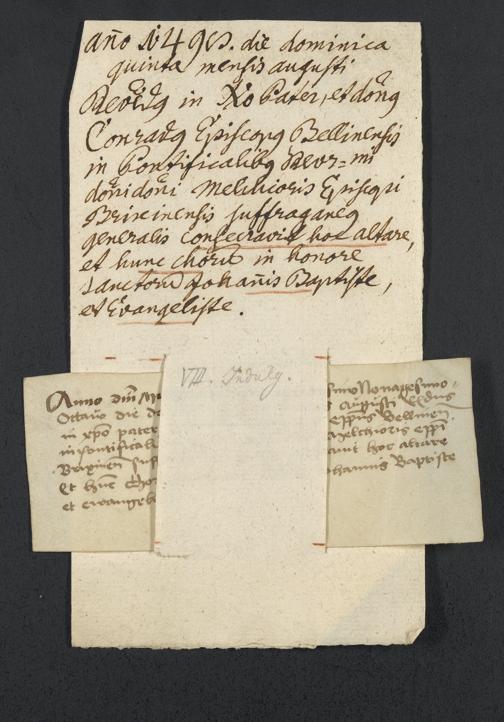 año 1498. die dominica
quinta mensis augusti
Revđg in Xo Pater, et dõng
Conradg Episcopg Bellinensis
in Pontificalibg Revr=mi
dõni dõni Melchioris Episcopi
Brixinensis suffraganeg
generalis consecravit hoc altare,
et hunc chorũ in honore
sanctorũ Johañis Baptiste,
et Evangeliste.
VIII. Indulg.
Anno Dñi
Octavo die do
in xp̄o pater
in pontificali
Brixineñ suf
et hũc chor
et ewangeli
simo Nonagesimo
Augusti
epp̄us Bellineñ
Melchioris epp̄i
avit hoc altare
ohannis Baptiste